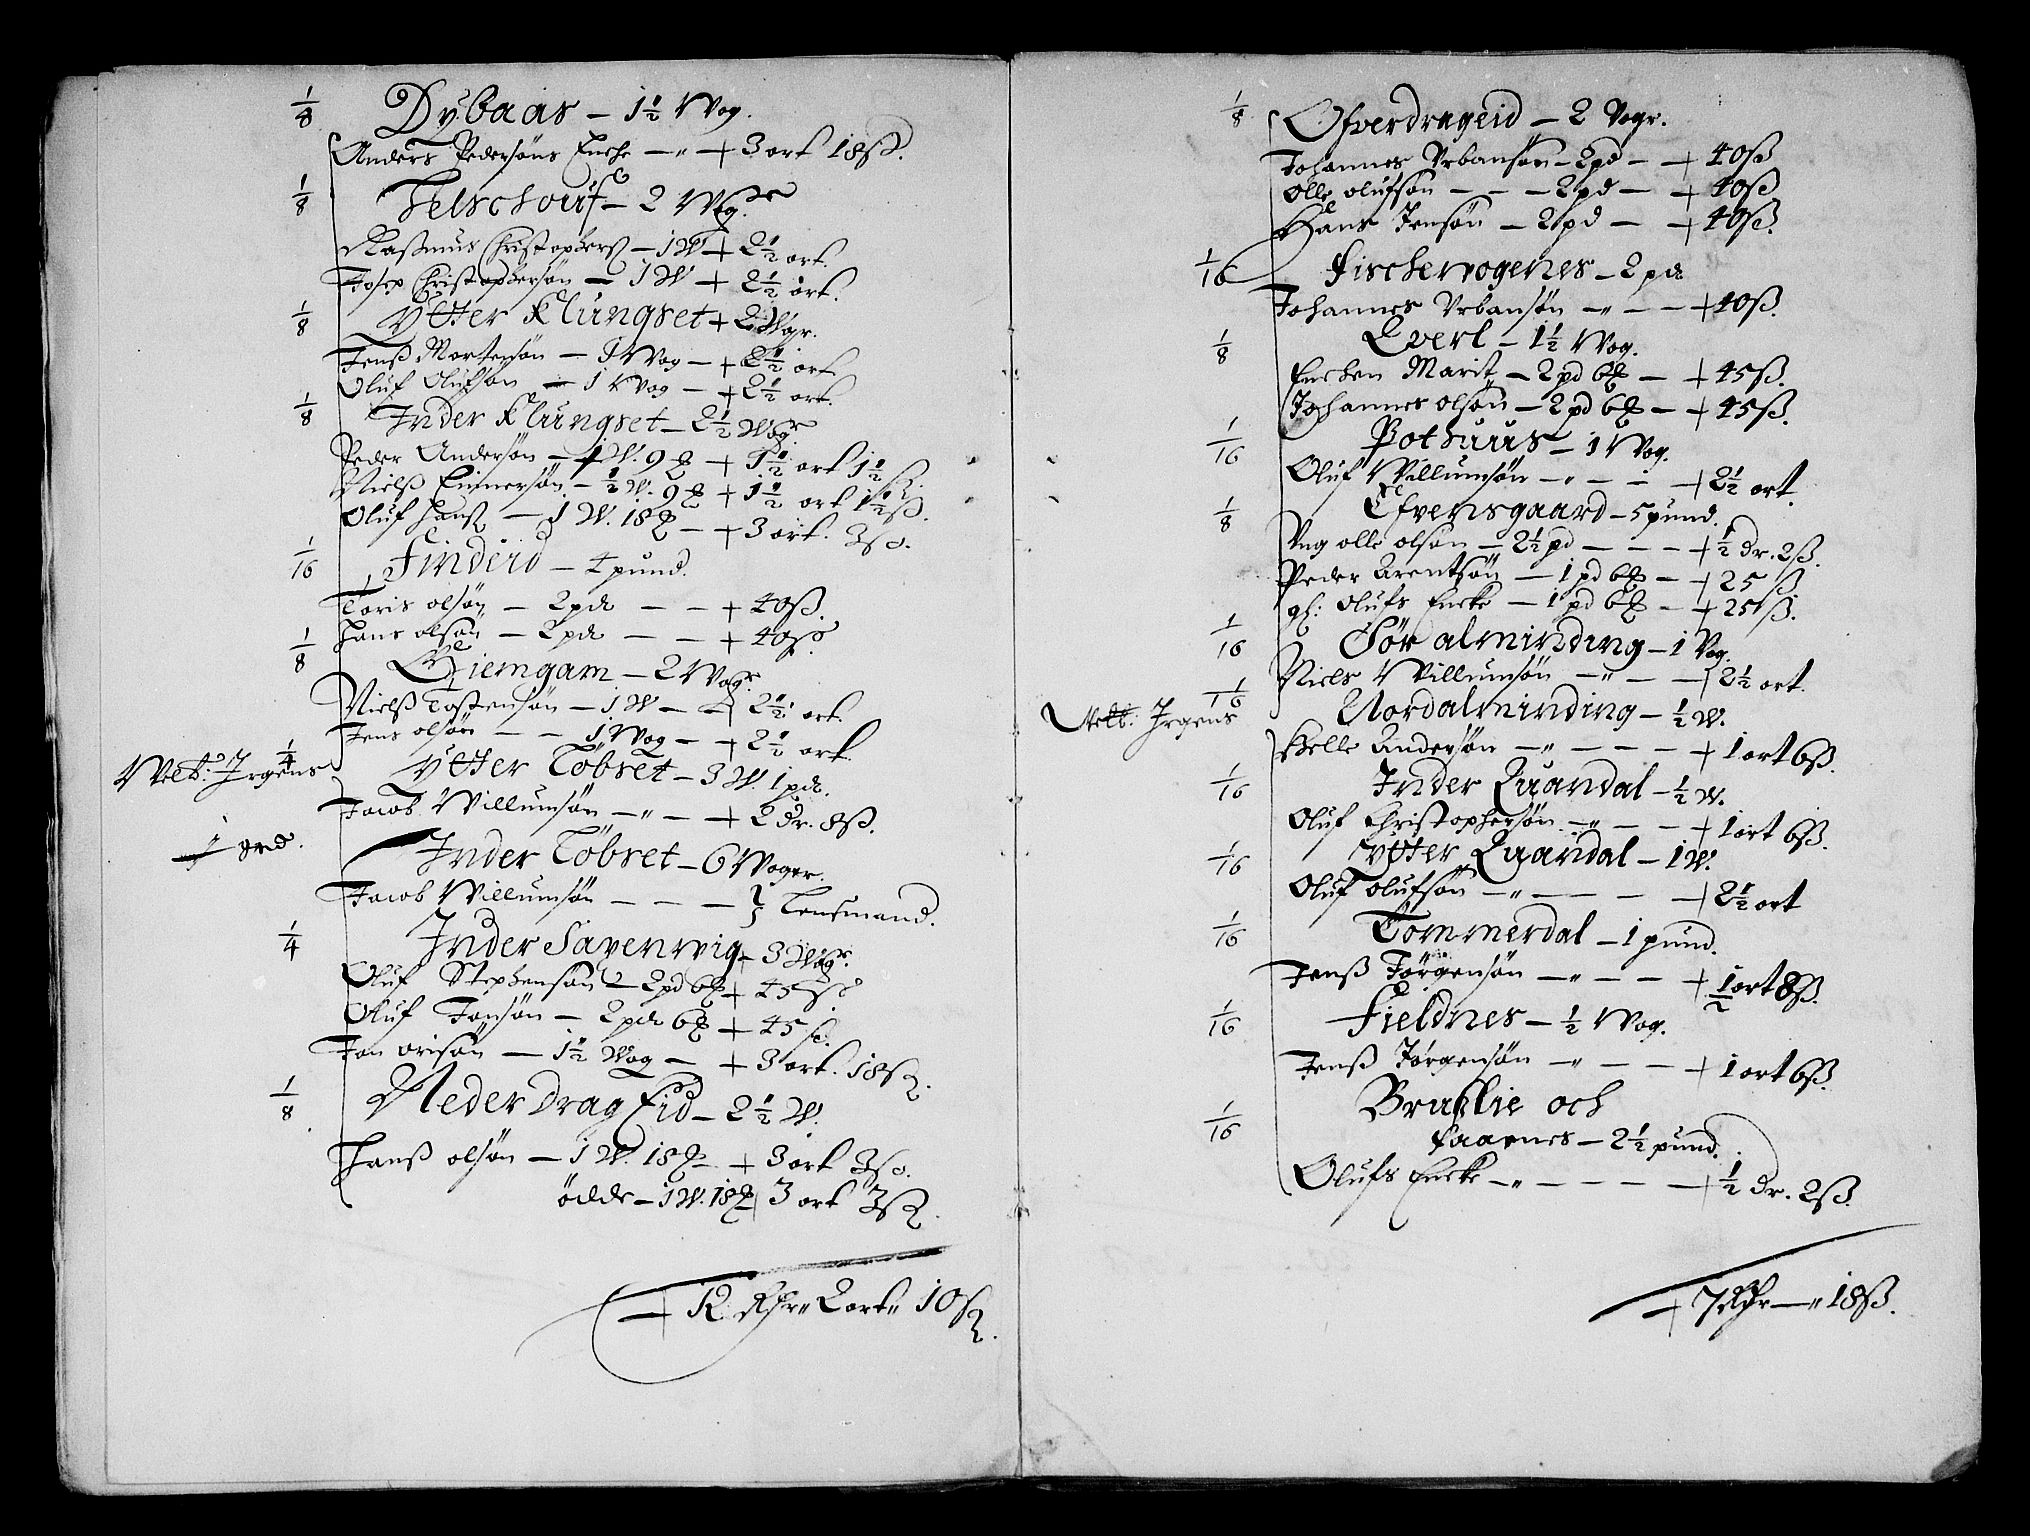 1/8 Dybaas – 1½ Wog.
Anders Pedersøns Encke – „ – + 3 ort 18ß.
1/8 Telschouf – 2 Wgr
Rasmus Christophers – 1 W + 2½ ort.
Josep Christophersøn – 1 W + 2½ ort.
1/8 Ytter Klungset + 2 Wgr.
Jenß Mortensøn – 1 Wog – + 2½ ort
Oluf Olufsøn – 1 Wog – + 2½ ort.
1/8 Inder Klungset – 2½ Wogr.
Peder Andersøn – ½ W. 9 ℔ + 1½ ort 1½ ß.
Nielß Einersøn – ½ W. 9 ℔ + 1½ ort 1½ ß.
Oluf Hanß – 1 W. 18 ℔ – + 3 ort. 3 ß.
1/16 Findeid – 4 pund.
Toris olsøn – 2 pd – – + 40ß.
Hans olsøn – 2 pd – – + 40ß
1/8 Giemgam – 2 Wogr
Nielß Tostensøn – 1 W – – + 2½ ort.
Jens olsøn – – 1 Wog – – + 2½ ort.
Welb: Jrgens 1/4 Ytter Tobset – 3 W. 1 pd.
Jacob Willumsøn – „ – – + 2 dr. 8ß.
1 grd. Inder Tobset – 6 Woger.
Jacob Willumsøn – – – } Lensmand.
1/4 Inder Savenwig – 3 Wogr.
Oluf Stephensøn – 2 pd 6 ℔ + 45 ß
Oluf Jonsøn – 2 pd 6 ℔ + 45 ß.
Jon orisøn – 1½ Wog – + 3 ort. 18 ß.
1/8 Neder Drag Eid – 2½ W.
Hanß olsøn – 1 W. 18 ℔ – + 3 ort 3 ß.
ödde – 1 W. 18 ℔ 3 ort 3 ß.
+ 12 Rdr „ 2 ort „ 10 ß.
1/8 Ofverdrageid – 2 Vogr.
Johannes Urbansøn – 2 pd – + 40ß
Olle olufsøn – – – 2 pd – + 40ß
Hans Jensøn – 2 pd – + 40ß.
1/16 Fischervogenes – 2 pd
Johannes Urbansøn – „ – – + 40ß.
1/8 Everl – 1½ Wog.
Encken Marit – 2 pd 6 ℔ – + 45ß.
Johannes olsøn – 2 pd 6 ℔ – + 45ß.
1/16 Pothuus – 1 Wog.
Oluf Willumsøn – „ – – + 2½ ort.
1/8 Efvensgaard – 5 pund.
Ung olle olsøn – 2½ pd – – – + ½ dr. 2ß.
Peder Arentsøn – 1 pd 6 ℔ – + 25 ß
gl: Olufs Encke – 1 pd 6 ℔ – + 25 ß.
1/16 Sør alminding – 1 Vog.
Niels Willumsøn – „ – – + 2½ ort.
Welb: Jrgens 1/16 Nordalminding – ½ W.
Helle Andersøn – „ – – – + 1 ort 6ß.
1/16 Inder Quandal – ½ W.
Oluf Christophersøn – „ – – + 1 ort 6ß.
1/16 Ytter Quandal – 1 W.
Oluf olufsøn – „ – – – + 2½ ort
1/16 Tömmerdal – 1 pund.
Jenß Jørgensøn – „ – – + ½ ort 8ß.
1/16 Fieldnes – ½ Wog.
Jenß Jørgensøn – „ – – – + 1 ort 6ß.
1/16 Braslie och
faarnes – 2½ pund.
Olufs Encke – „ – – – – + ½ dr. 2ß.
+ 7 Rdr – „ 18ß.